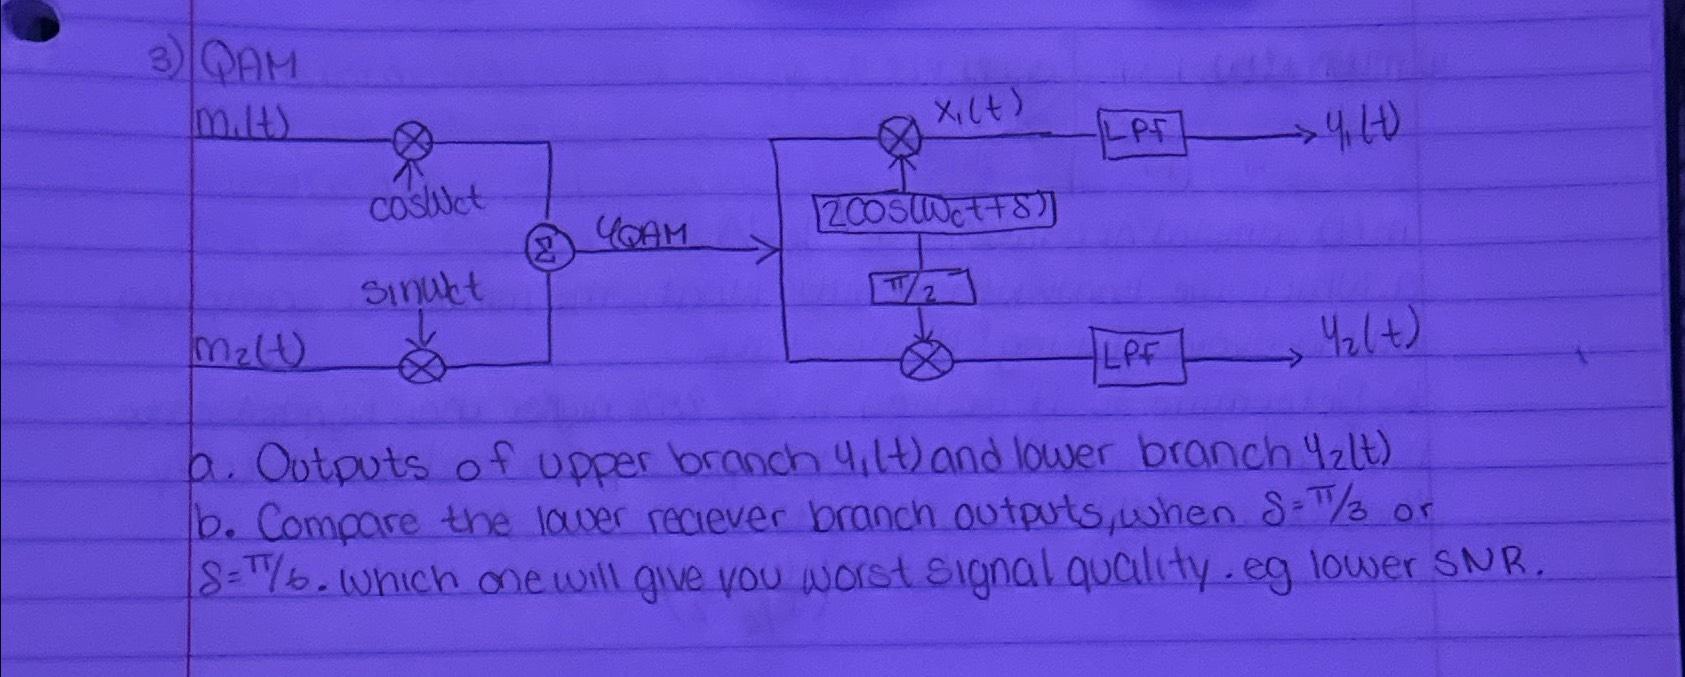 3) QAM
m1(t)
cosWct
sinWct
m2(t)
Σ
φQAM
x1(t)
2COS(Wct+δ)
π/2
LPF
y1(t)
LPF
y2(t)
a. Outputs of upper branch y1(t) and lower branch y2(t)
b. Compare the lower reciever branch outputs, when δ=π/3 or
δ=π/6. Which one will give you worst signal quality. eg lower SNR.